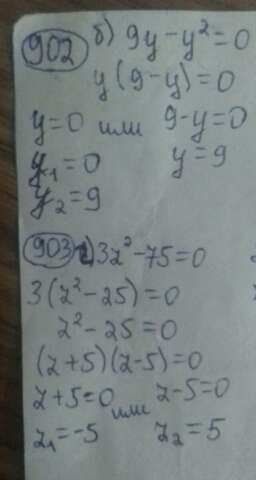 902 б) 9y - y² = 0
y(9 - y) = 0
y = 0 или 9 - y = 0
y₁ = 0 y = 9
y₂ = 9
903 3z² - 75 = 0
3(z² - 25) = 0
z² - 25 = 0
(z + 5)(z - 5) = 0
z + 5 = 0 или z - 5 = 0
z₁ = -5 z₂ = 5